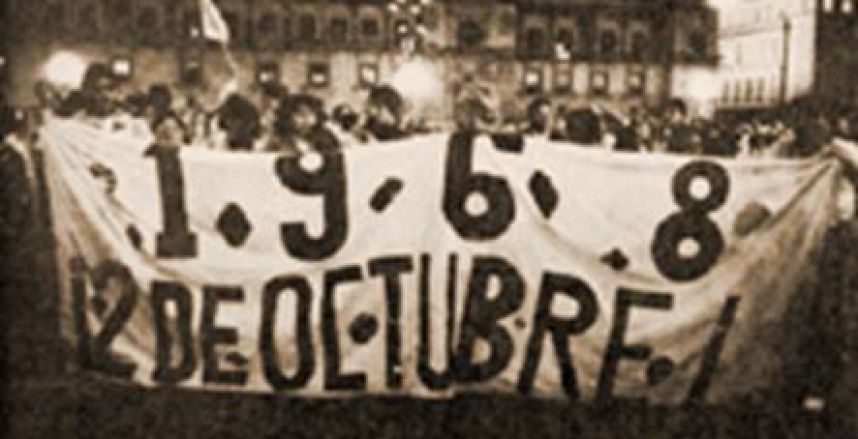 1968
¡2 DE OCTUBRE!